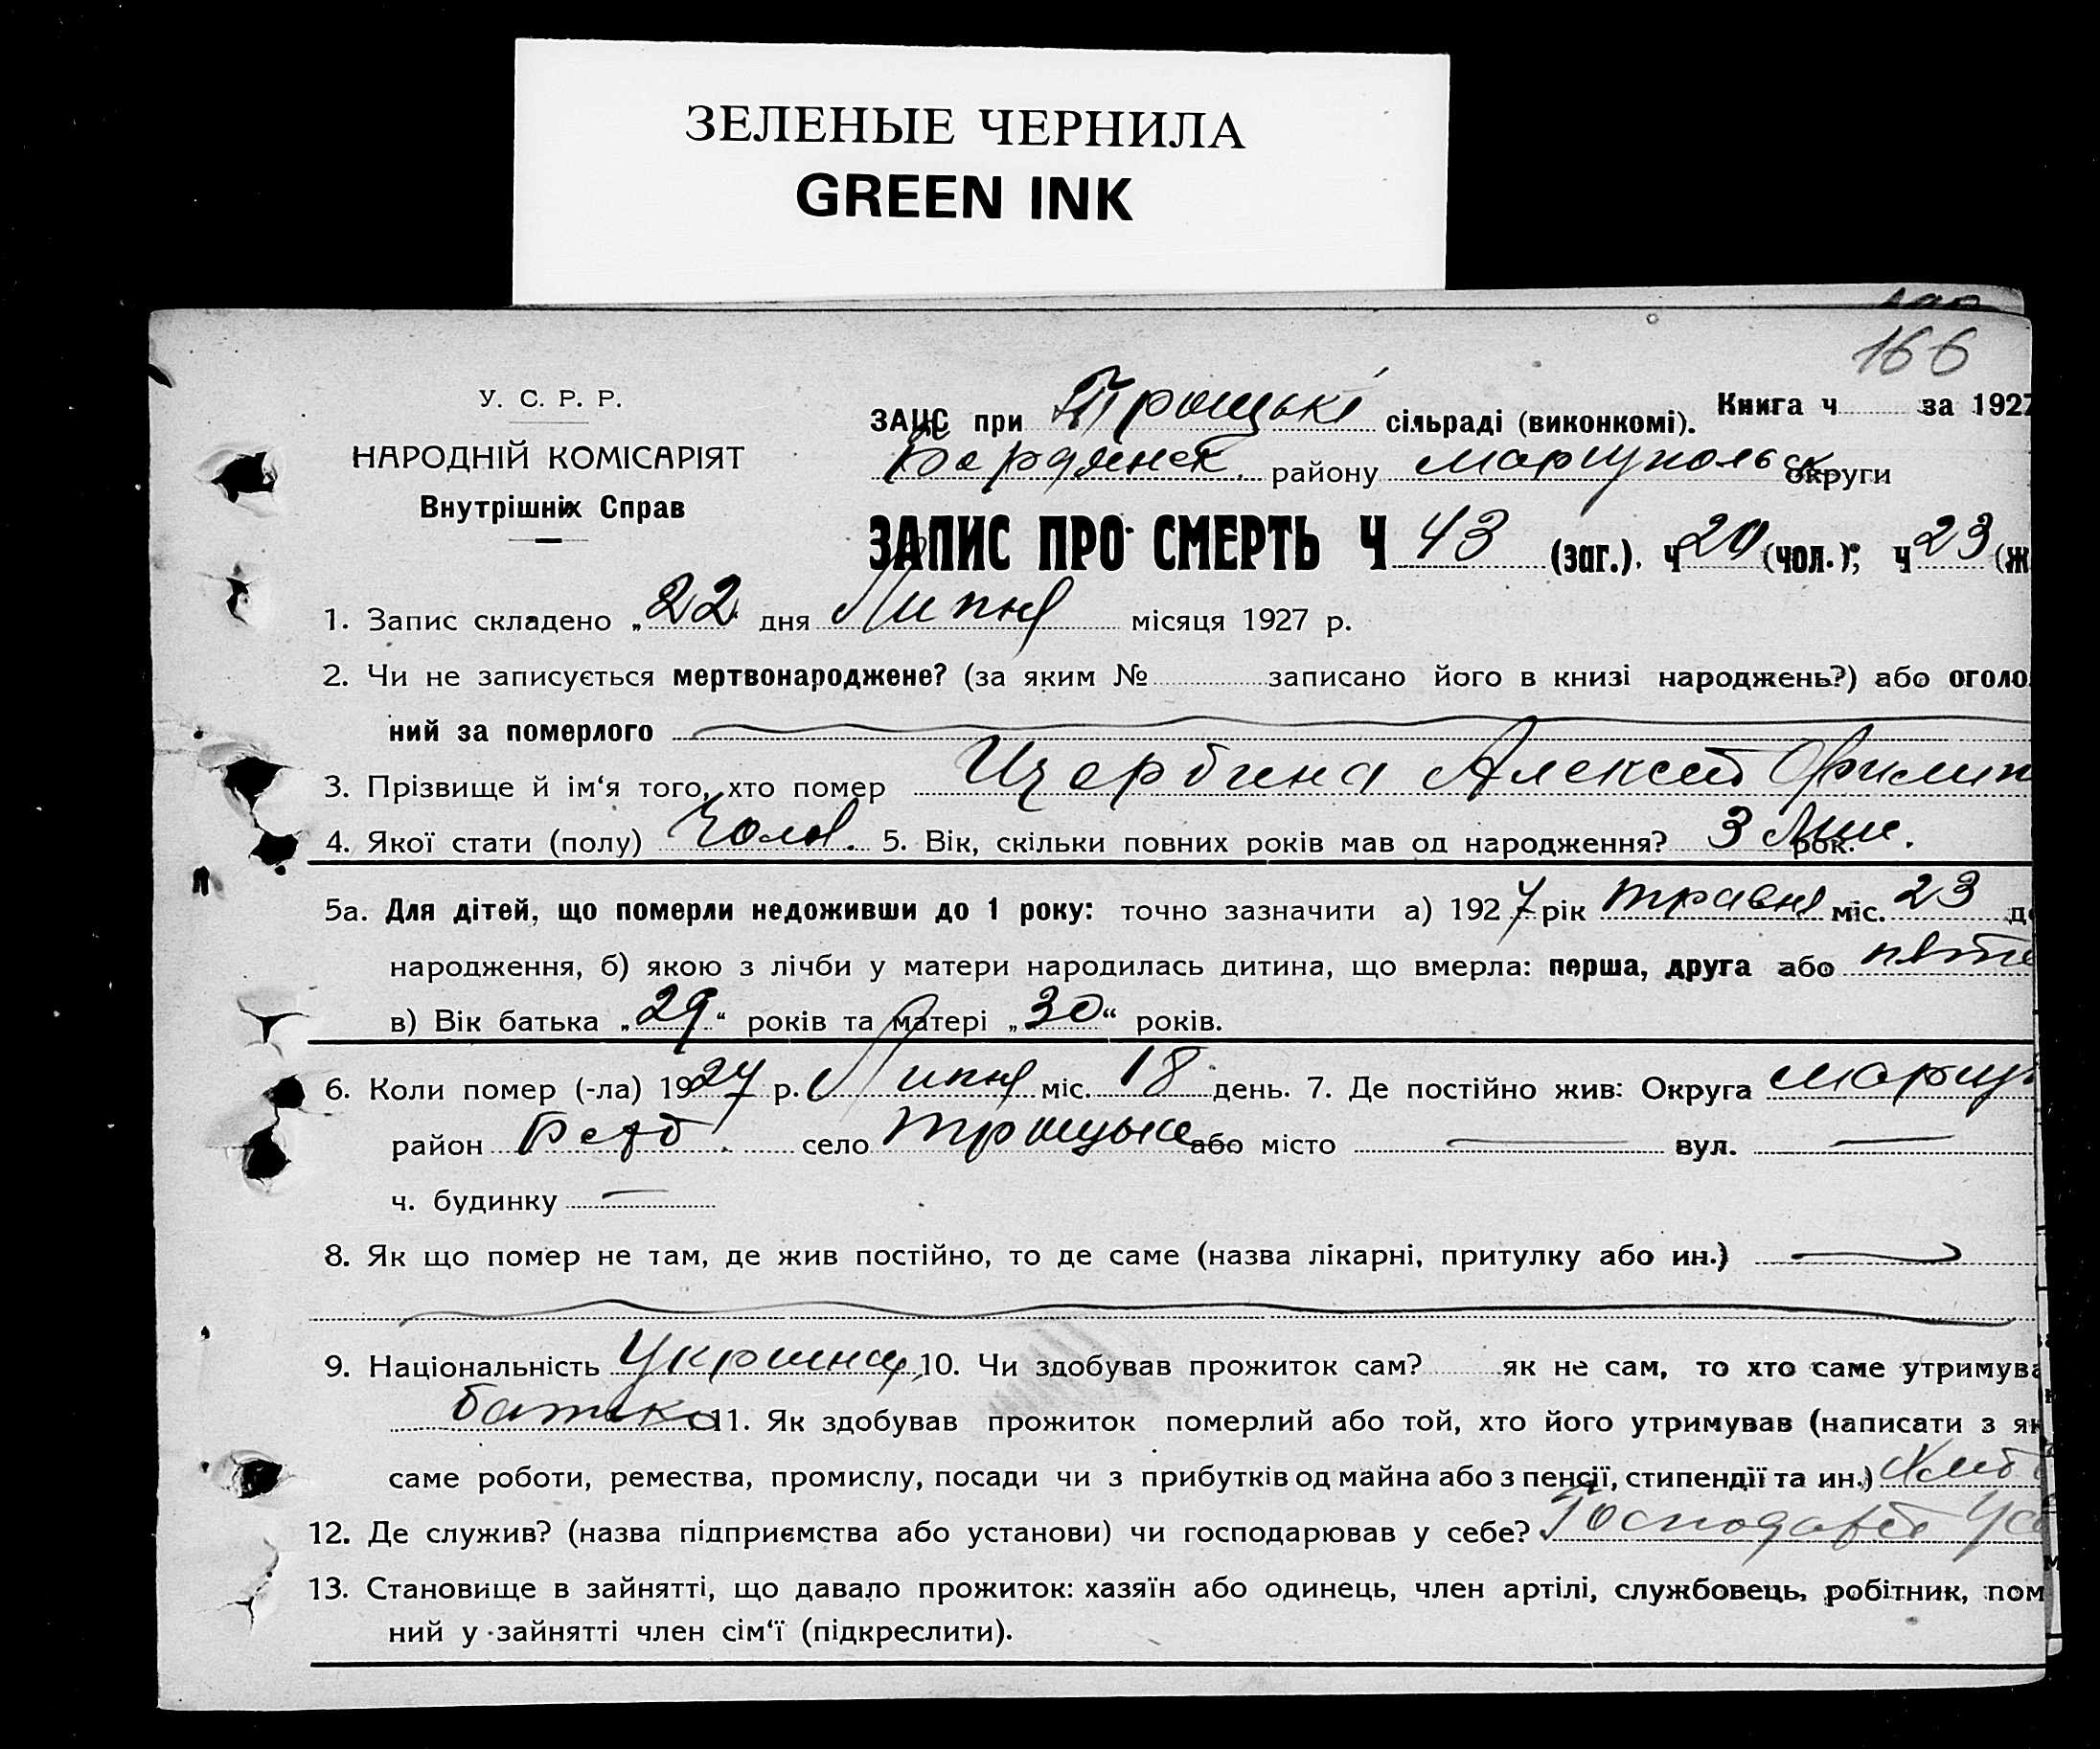 ЗЕЛЕНЫЕ ЧЕРНИЛА
GREEN INK
166
У. С. Р. Р.
НАРОДНІЙ КОМІСАРІЯТ
Внутрішніх Справ
Книга ч за 1927
ЗАЦС при Троицькі сільраді (виконкомі).
Бердянск. району Мариупольск округи
ЗАПИС ПРО СМЕРТЬ Ч 43 (заг.). ч 20 (чол.); ч 23 (ж
1. Запис складено „22" дня Липня місяця 1927 р.
2. Чи не записується мертвонароджене? (за яким № записано його в книзі народжень?) або оголо
ний за померлого
3. Прізвище й ім‘я того, хто помер Щербина Алексей Филип
4. Якої стати (полу) Чолов. 5. Вік, скільки повних років мав од народження? 3 Міс. рок.
5а. Для дітей, що померли недоживши до 1 року: точно зазначити а) 1927 рік травня міс. 23 д
народження, б) якою з лічби у матери народилась дитина, що вмерла: перша, друга або
в) Вік батька „29“ років та матері „30“ років.
6. Коли помер (-ла) 1927 р. Липня міс. 18 день. 7. Де постійно жив: Округа Мариу
район Берд. село Троицьке або місто вул.
ч. будинку
8. Як що помер не там, де жив постійно, то де саме (назва лікарні, притулку або ин.)
9. Національність Украинец 10. Чи здобував прожиток сам? як не сам, то хто саме утримува
батько 11. Як здобував прожиток померлий або той, хто його утримував (написати з як
саме роботи, ремества, промислу, посади чи з прибутків од майна або з пенсії, стипендії та ин.) Хліб
12. Де служив? (назва підприємства або установи) чи господарював у себе? Господарює у се
13. Становище в зайнятті, що давало прожиток: хазяїн або одинець, член артілі, службовець, робітник, пом
ний у зайнятті член сім‘ї (підкреслити).